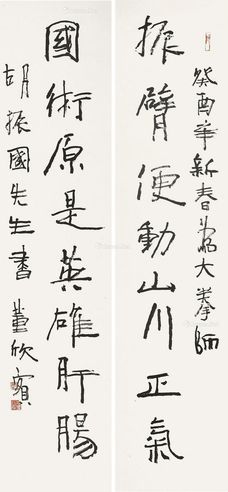 癸酉 新春 大拳師
振臂便動山川正氣
國術原是英雄肝腸
胡振國先生書 董欣賓